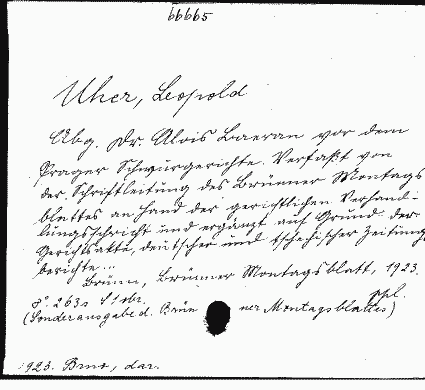 66665
Uher, Leopold
Abg. Dr. Alois Baeran vor dem
Prager Schwurgerichte. Verfaßt von
der Schriftleitung des Brünner Montags
blattes an Hand der gerichtlichen Verhand-
lungsschrift und ergänzt auf Grund der
Gerichtsakte, deutscher und tschechischer Zeitungs
berichte...
Brünn, Brünner Montagsblatt, 1923.
8°. 263 s.
(Sonderausgabe d. Brünner Montagsblattes)
1923. Brno, dar.